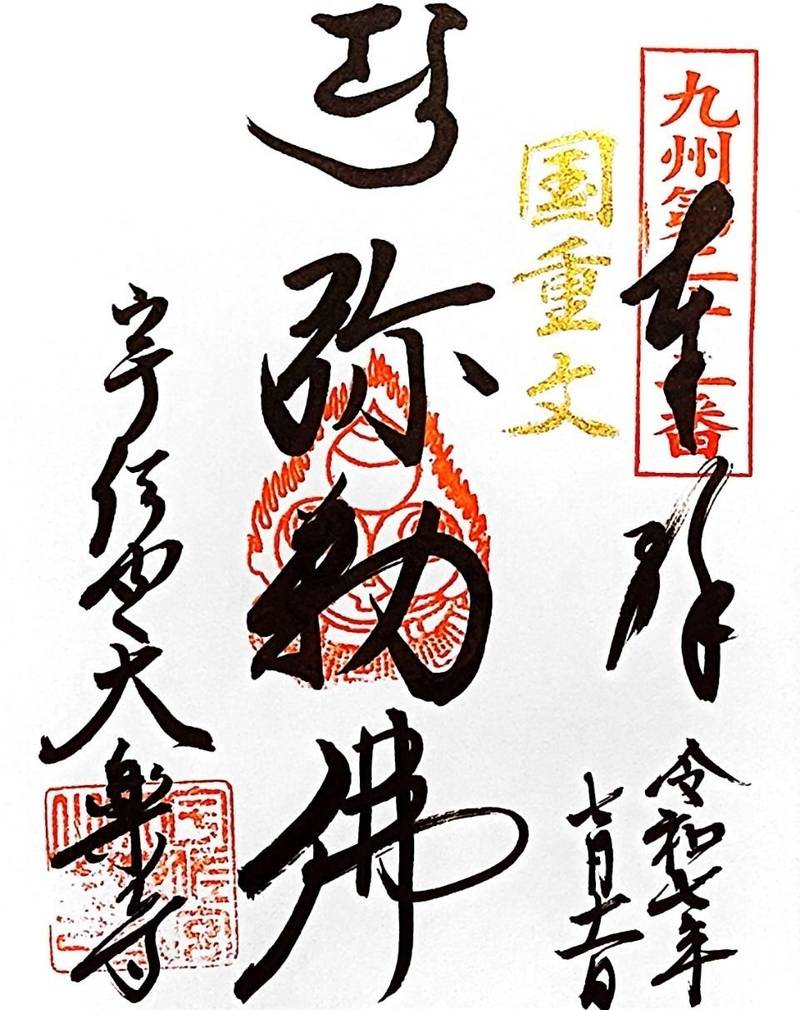 九州第二十 番
奉拝
令和七年
七月十一日
国重文
弥勒佛
宇佐 大樂寺